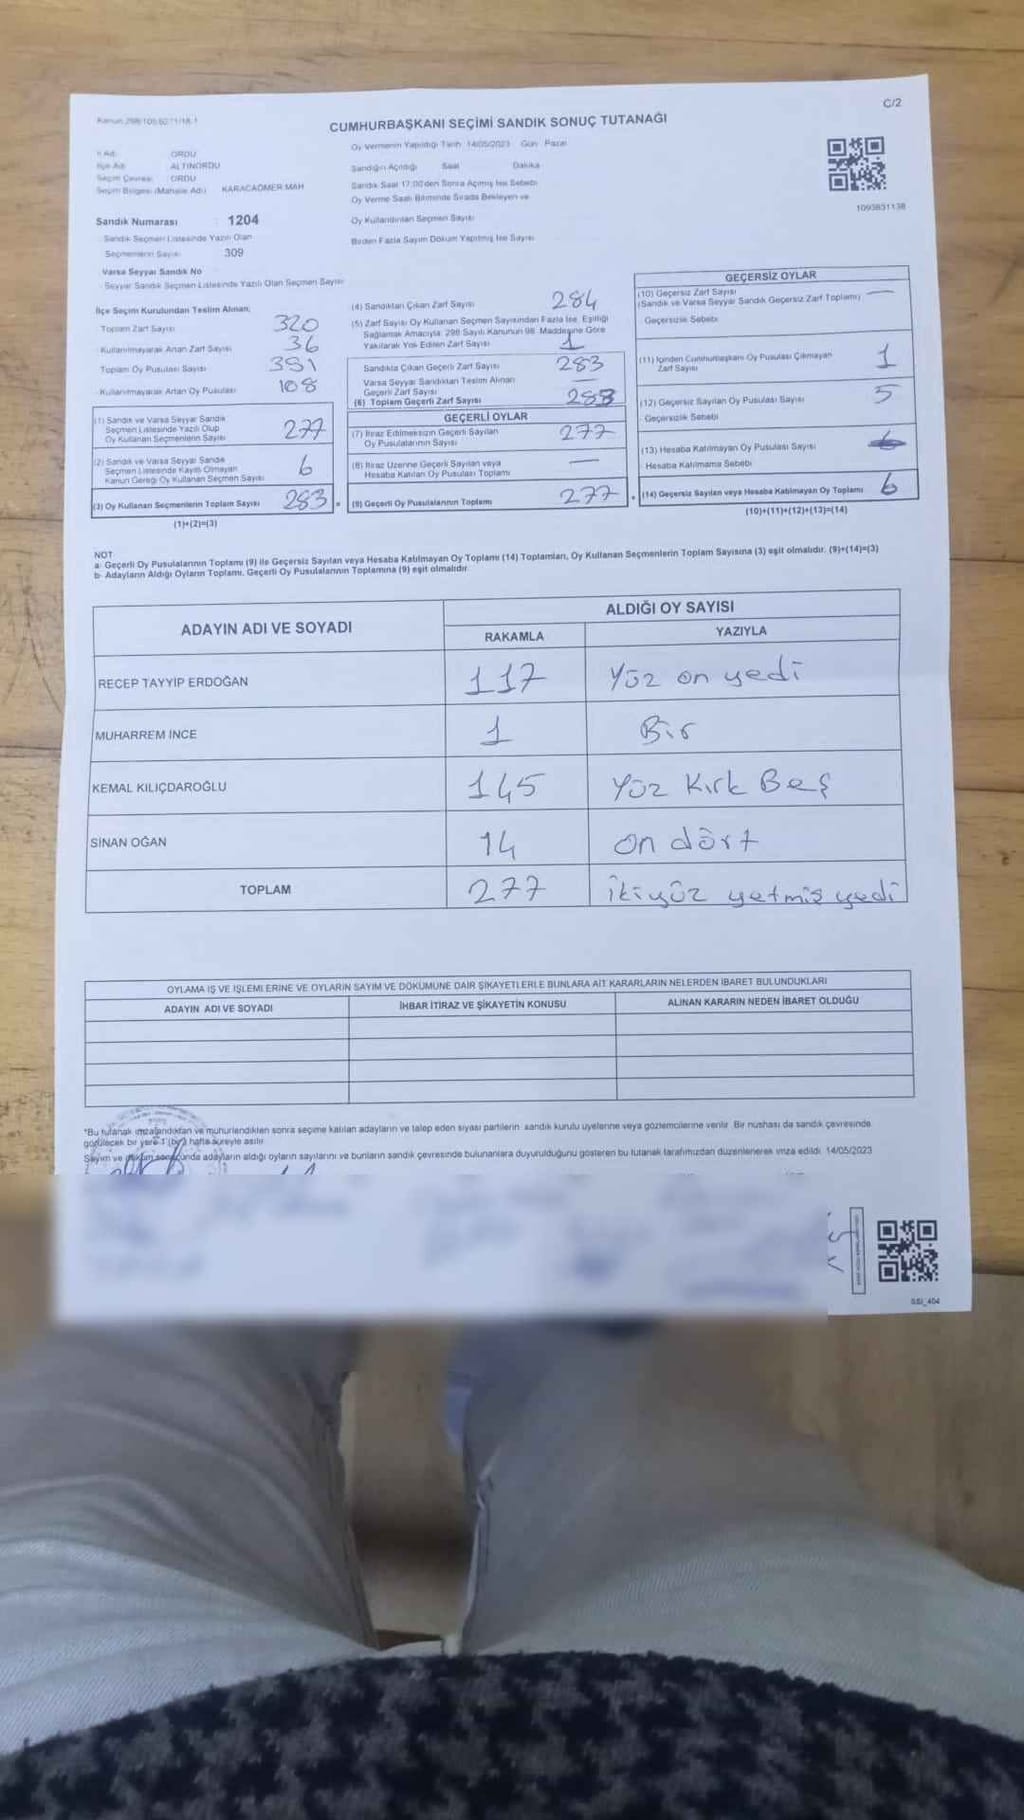 C/2
CUMHURBAŞKANI SEÇİMİ SANDIK SONUÇ TUTANAĞI
Oy Vermenin Yapıldığı Tarih 14/05/2023 Gün Pazar
İl Adı ORDU
İlçe Adı ALTINORDU
Seçim Çevresi ORDU
Seçim Bölgesi (Mahalle Adı) KARACAÖMER MAH
Sandığın Açıldığı Saat Dakika
Sandık Saat 17:00'den Sonra Açılmış İse Sebebi
Oy Verme Saati Bitiminde Sırada Bekleyen ve
Oy Kullandırılan Seçmen Sayısı
Birden Fazla Sayım Döküm Yapılmış İse Sayısı
1093831138
Sandık Numarası 1204
Sandık Seçmen Listesinde Yazılı Olan
Seçmenlerin Sayısı 309
Varsa Seyyar Sandık No
Seyyar Sandık Seçmen Listesinde Yazılı Olan Seçmen Sayısı
İlçe Seçim Kurulundan Teslim Alınan;
Toplam Zarf Sayısı 320
Kullanılmayarak Artan Zarf Sayısı 36
Toplam Oy Pusulası Sayısı 391
Kullanılmayarak Artan Oy Pusulası 108
(1) Sandık ve Varsa Seyyar Sandık
Seçmen Listesinde Yazılı Olup
Oy Kullanan Seçmenlerin Sayısı 277
(2) Sandık ve Varsa Seyyar Sandık
Seçmen Listesinde Kayıtlı Olmayan
Kanun Gereği Oy Kullanan Seçmen Sayısı 6
(3) Oy Kullanan Seçmenlerin Toplam Sayısı 283
(1)+(2)=(3)
(4) Sandıktan Çıkan Zarf Sayısı 284
(5) Zarf Sayısı Oy Kullanan Seçmen Sayısından Fazla İse, Eşitliği
Sağlamak Amacıyla, 298 Sayılı Kanunun 98. Maddesine Göre
Yakılarak Yok Edilen Zarf Sayısı 1
Sandıkta Çıkan Geçerli Zarf Sayısı 283
Varsa Seyyar Sandıktan Teslim Alınan
Geçerli Zarf Sayısı —
(6) Toplam Geçerli Zarf Sayısı 283
GEÇERLİ OYLAR
(7) İtiraz Edilmeksizin Geçerli Sayılan
Oy Pusulalarının Sayısı 277
(8) İtiraz Üzerine Geçerli Sayılan veya
Hesaba Katılan Oy Pusulası Toplamı —
(9) Geçerli Oy Pusulalarının Toplamı 277
GEÇERSİZ OYLAR
(10) Geçersiz Zarf Sayısı —
(Sandık ve Varsa Seyyar Sandık Geçersiz Zarf Toplamı)
Geçersizlik Sebebi
(11) İçinden Cumhurbaşkanı Oy Pusulası Çıkmayan
Zarf Sayısı 1
(12) Geçersiz Sayılan Oy Pusulası Sayısı 5
Geçersizlik Sebebi
(13) Hesaba Katılmayan Oy Pusulası Sayısı
Hesaba Katılmama Sebebi
(14) Geçersiz Sayılan veya Hesaba Katılmayan Oy Toplamı 6
(10)+(11)+(12)+(13)=(14)
NOT
a- Geçerli Oy Pusulalarının Toplamı (9) ile Geçersiz Sayılan veya Hesaba Katılmayan Oy Toplamı (14) Toplamları, Oy Kullanan Seçmenlerin Toplam Sayısına (3) eşit olmalıdır. (9)+(14)=(3)
b- Adayların Aldığı Oyların Toplamı, Geçerli Oy Pusulalarının Toplamına (9) eşit olmalıdır.
ADAYIN ADI VE SOYADI ALDIĞI OY SAYISI
RAKAMLA YAZIYLA
RECEP TAYYİP ERDOĞAN 117 Yüz on yedi
MUHARREM İNCE 1 Bir
KEMAL KILIÇDAROĞLU 145 Yüz Kırk Beş
SİNAN OĞAN 14 on dört
TOPLAM 277 ikiyüz yetmiş yedi
OYLAMA İŞ VE İŞLEMLERİNE VE OYLARIN SAYIM VE DÖKÜMÜNE DAİR ŞİKAYETLERLE BUNLARA AİT KARARLARIN NELERDEN İBARET BULUNDUKLARI
ADAYIN ADI VE SOYADI İHBAR İTİRAZ VE ŞİKAYETİN KONUSU ALINAN KARARIN NEDEN İBARET OLDUĞU
*Bu tutanak imzalandıktan ve mühürlendikten sonra seçime katılan adayların ve talep eden siyasi partilerin sandık kurulu üyelerine veya gözlemcilerine verilir. Bir nüshası da sandık çevresinde
görülecek bir yere 1 (bir) hafta süreyle asılır.
Sayım ve döküm sonucunda adayların aldığı oyların sayılarını ve bunların sandık çevresinde bulunanlara duyurulduğunu gösteren bu tutanak tarafımızdan düzenlenerek imza edildi. 14/05/2023